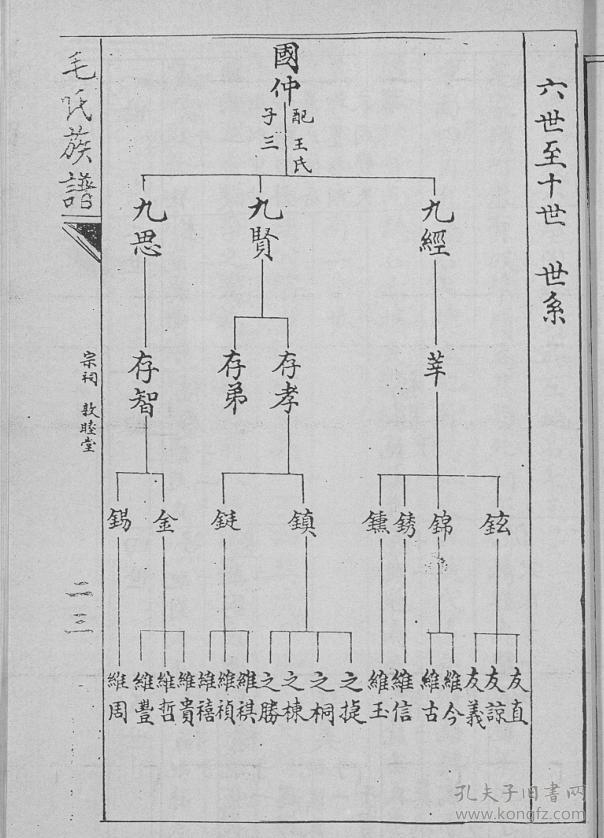 六世至十世 世系
國仲
配王氏
子三
九經
九賢
九思
莘
存孝
存弟
存智
鉉
錦
銹
鑂
鎮
鋌
金
錫
友直
友諒
友義
維今
維古
維信
維玉
之㨗
之桐
之棟
之勝
維祺
維禎
維禧
維貴
維哲
維豐
維周
毛氏族譜
宗祠 敦睦堂
二三
孔夫子旧書网
www.kongfz.com